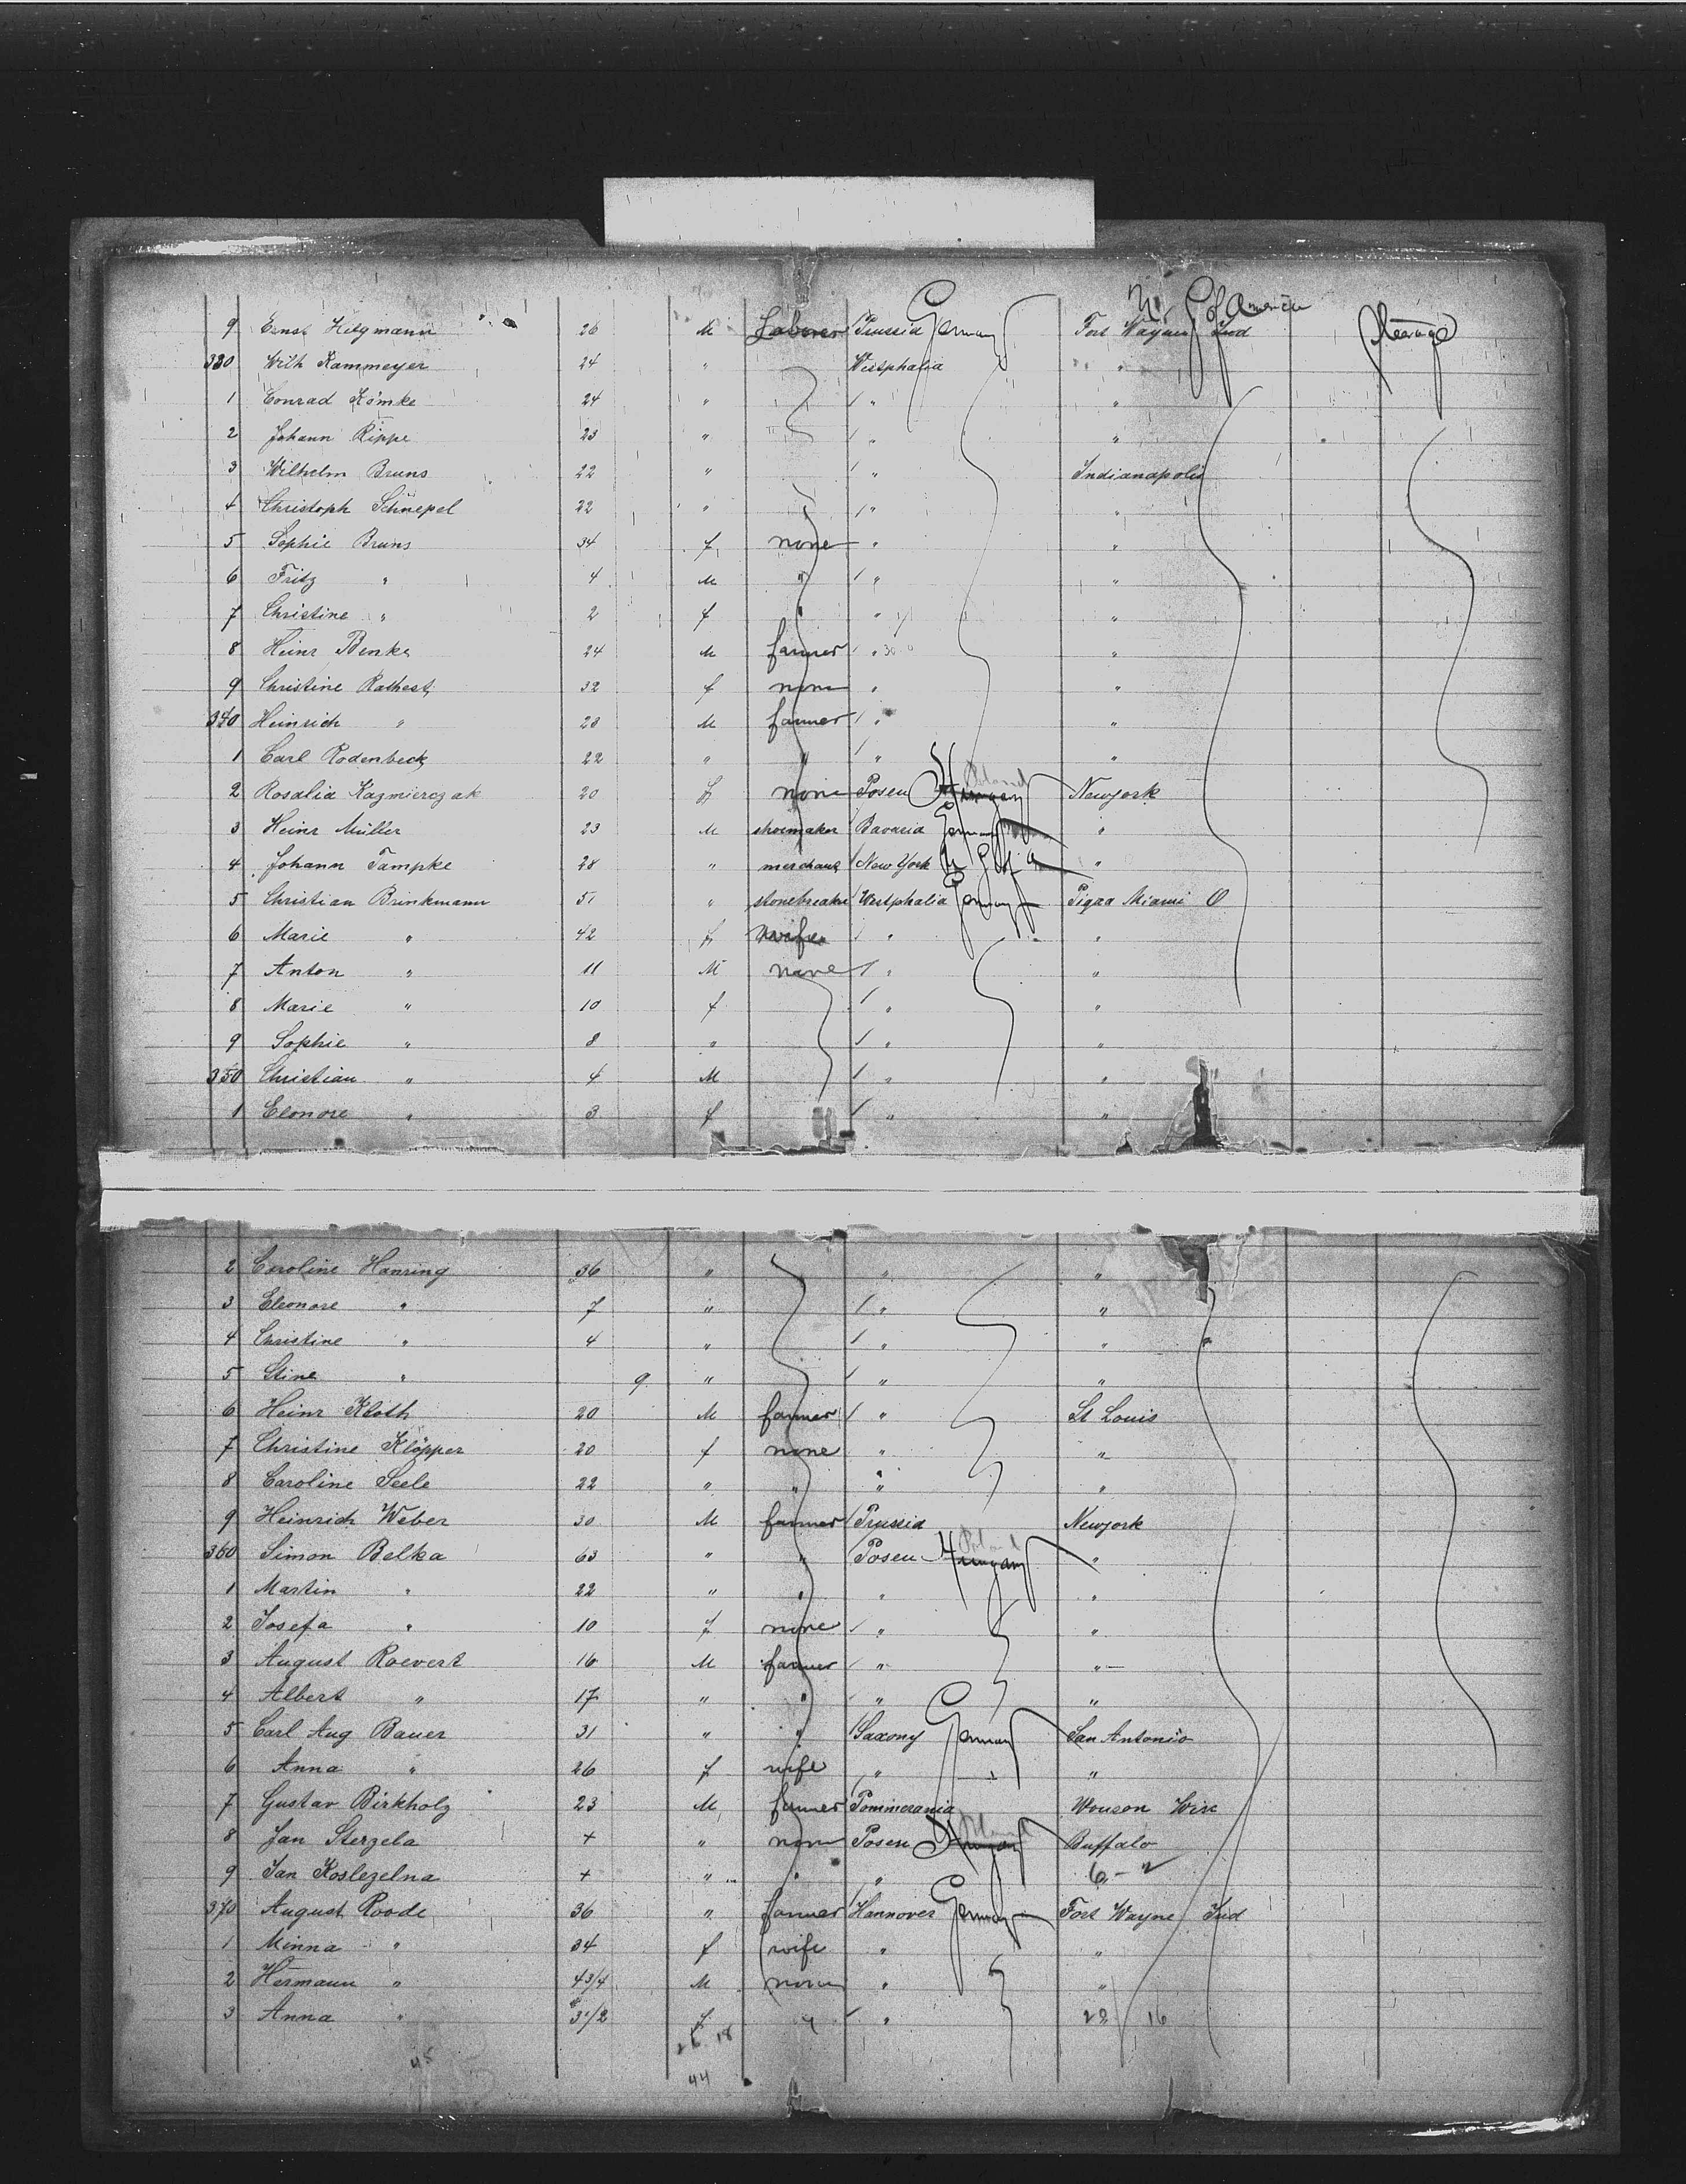 U S of America
9 Ernst Hilgmann 26 M Laborer Prussia Germany Fort Wayne Ind Steerage
330 Wilh Kammeyer 24 " Westphalia "
1 Conrad Kömke 24 " " "
2 Johann Rippe 23 " " "
3 Wilhelm Bruns 22 " " Indianapolis
4 Christoph Schnepel 22 " " "
5 Sophie Bruns 34 f none " "
6 Fritz " 4 M " " "
7 Christine " 2 f " " "
8 Heinr Benke 24 M farmer " "
9 Christine Rathert 32 f none " "
340 Heinrich " 28 M farmer " "
1 Carl Rodenbeck 22 " " "
2 Rosalia Kazmierczak 20 f none Posen Hungary Poland Newyork
3 Heinr Müller 23 M shoemaker Bavaria Germany "
4 Johann Tampke 28 " merchant New York U S of A "
5 Christian Brinkmann 51 " stonebreaker Westphalia Germany Piqua Miami O
6 Marie " 42 f wife " "
7 Anton " 11 M none " "
8 Marie " 10 f " "
9 Sophie " 8 " " "
350 Christian " 4 M " "
1 Elonore " 3 f " "
2 Caroline Hanring 36 " " "
3 Eleonore " 7 " " "
4 Christine " 4 " " "
5 Stine " 9 " " "
6 Heinr Kloth 20 M farmer " St Louis
7 Christine Klöpper 20 f none " "
8 Caroline Seele 22 " " " "
9 Heinrich Weber 30 M farmer Prussia Newyork
360 Simon Belka 63 " " Posen Hungary Poland "
1 Martin " 22 " " " "
2 Josefa " 10 f none " "
3 August Roevert 16 M farmer " "
4 Albert " 17 " " " "
5 Carl Aug Bauer 31 " " Saxony Germany San Antonio
6 Anna " 26 f wife " "
7 Gustav Birkholz 23 M farmer Pommerania Wouson Wisc
8 Jan Sterzela + " none Posen Hungary Poland Buffalo
9 Jan Koslezelna + " " "
370 August Roode 36 " farmer Hannover Germany Fort Wayne Ind
1 Minna " 34 f wife " "
2 Hermann " 4 3/4 M none " "
3 Anna " 3 1/2 f " " 28 16
45 26 18
44